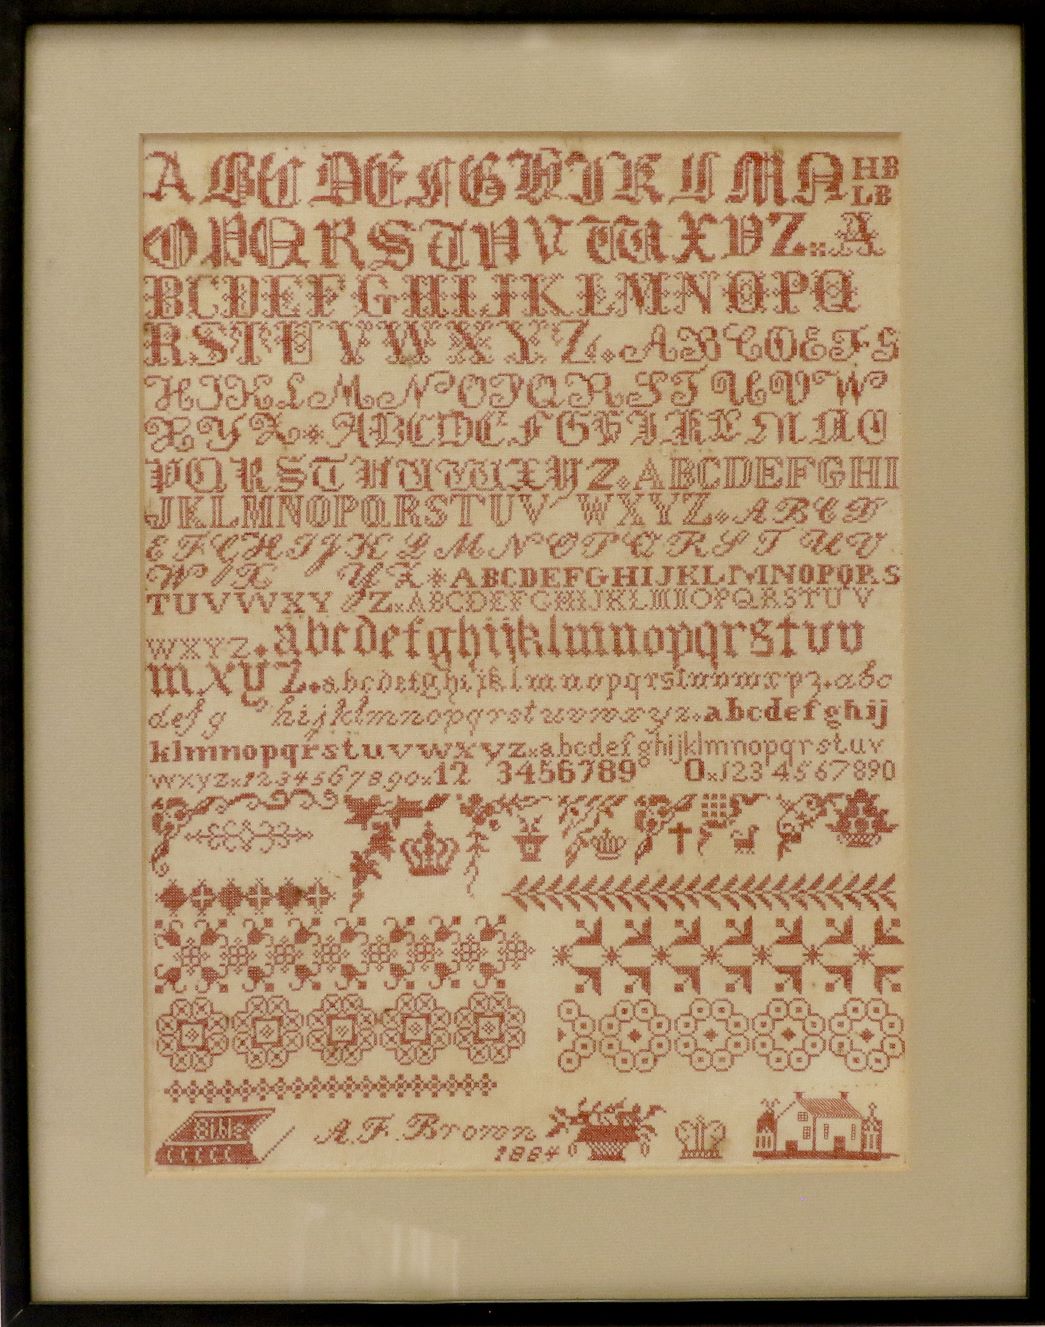 ABCDEFGHIJKLMN HB
LB
OPQRSTUVWXYZ A
BCDEFGHIJKLMNOPQ
RSTUVWXYZ ABCDEFG
HIJKLMNOPQRSTUVW
XYZ ABCDEFGHIKLMNO
PQRSTUVWXYZ. ABCDEFGHI
JKLMNOPQRSTUVWXYZ ABCD
EFGHIJKLMNOPQRSTUV
WXYZ ABCDEFGHIJKLMNOPQRS
TUVWXYZ ABCDEFGHIJKLMNOPQRSTUV
WXYZ. abcdefghijklmnopqrstuv
wxyz abcdefghijklmnopqrstuvwxyz abc
defg hijklmnopqrstuvwxyz abcdefghij
klmnopqrstuvwxyz abcdefghijklmnopqrstuv
wxyz 1234567890 12 3456789 0 1234567890
Bible A.F. Brown
1884